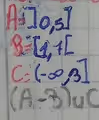 A=]0,5]
B=[1,+[
C=(-∞,3]
(A-B)∪C